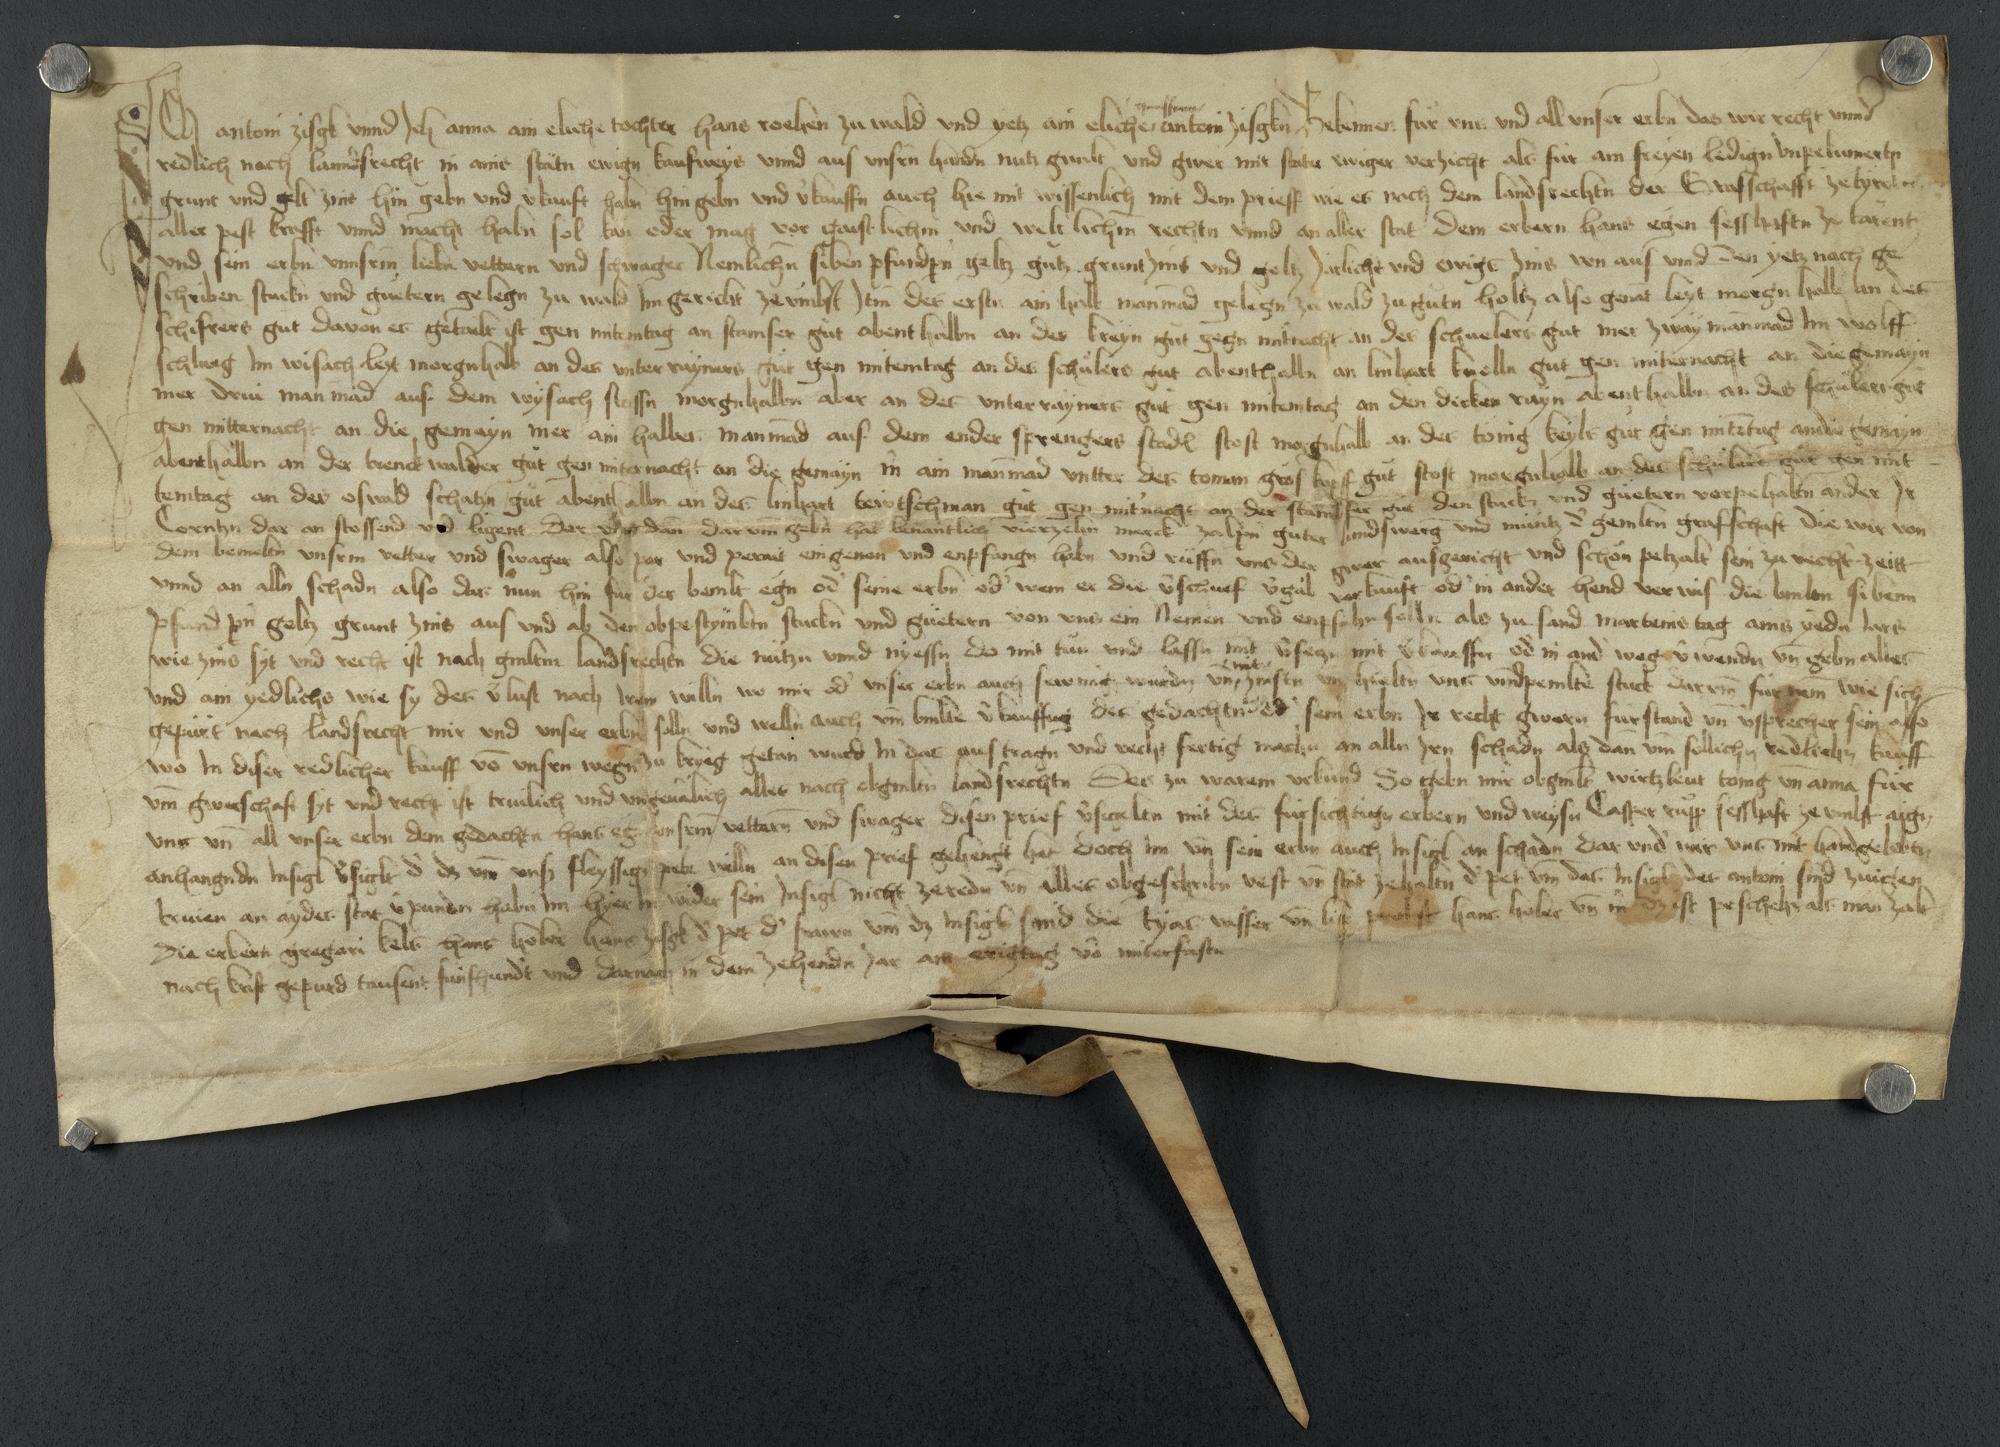 Ich antoni zisgk vnnd Ich anna ain eliche tochter hans roelen zu wald vnd yetz ain eliche hausfraw antoni zisgkn Bekennen für vns vnd all vnser erbn das wir recht vnnd
redlich nach lanndsrecht in ains stätn ewign kaufweys vnnd aus vnsrn handn nutz gwalt vnd gwer mit stäter ewiger verzicht als für ain freyen ledign vnpekumertn
grunt vnd gelt zins hin gebn vnd v̄kauft habn hin gebn vnd v̄kauffn auch hie mit wissenlich mit dem prieff wie es nach dem landsrechtn der Grafschafft ze tyrol
aller pest krafft vnnd macht habn sol kan oder mag vor gaistlichin vnd weltlichin rechtn vnnd an aller stat dem erbern hans egen sesshaftn ze tarent
vnd sein erbn vnnsrm liebn vettern vnd schwager Nemlichn siben pfund pn geltz gutz grunt zins vnd geltz Järlichs vnd ewigs zins von aus vnd den yetz nach ge
schriben stuckn vnd guetern gelegn zu wald Im gericht ze ymbst Itm des erstn ain halb manmad gelegn zu wald zu gutn holtz also genat leyt morgn halb an des
schifrers gut davon es getailt ist gen mitemtag an stamser gut abent halbn an des kreyn gut gegn mitnacht an des schuelers gut mer zway manmad Im wolff
schlueg Im wisach leyt morgnhalb an des vnterrayners gut gen mitemtag an des schulers gut abenthalbn an linhart knelln gut gen miternacht an die gemayn
mer drui manmad auf dem wysach stossn morgnhalbn aber an des vnterrayners gut gen mitemtag an den dicken rayn abenthalbn an des schulers gut
gen mitternacht an die gemayn mer ain halbes manmad auf dem ender sprengers stadl stost morgnhalb an des tönig keyls gut gen mittag an die gemayn
abenthalbn an der trenckwalder gut gen miternacht an die gemayn In ain manmad vntter des toman gros kopff gut stost morgnhalb an des schulers gut gen mit
temtag an des oswald schatzn gut abenthalbn an des linhart tewtschman gut gen mitnacht an der stamser gut den stuckn vnd guetern vorpehaltn ander Ir
Cornhn dar an stossend vnd ligent Der vns dan darvm gebn hat benantlich vierzehn marck zalpn guter landswerg vnd muntz d̄ gemltn grafschaft die wir von
dem bemeltn vnsrm vetter vnd swager also par vnd perait eingenen vnd enpfangn habn vnd ruffn vns der gwer ausgericht vnd schon petzalt sein zu rechter zeitt
vnnd an alln schadn also das nun hin fur der bemlt egn od̄ seine erbn od̄ wem er die v̄schuef v̄gäb verkauft od̄ in ander hend verwis die bmltn sibenn
pfund pn geltz grunt zins aus vnd ab den obpestymbtn stuckn vnd guetern von vns ein Nemen vnd enpfahn solln als zu sand marteins tag ains yedn Jars
wie zins syt vnd recht ist nach gmltm landsrechtn die nutzn vnnd nyessn do mit tun vnd lassn mit v̄setzn mit v̄kauffn od̄ in and̄ weg v̄wendn vn gebn alles
vnd ain yedlichs wie sy des v̄lust nach Irem willn wo mir od̄ vnser erbn auch sewmig wurdn vn mit zinsn vn hieltn vns vmd pemlte stuck darvm fur nem wie sich
gepürt nach landsrecht mir vnd vnser erbn solln vnd welln auch vm bmlte v̄kauffug des gedachtn od̄ sein erbn Ir recht gwern furstand vn v̄sprecher sein also
wo In diser redlicher kauff vo vnsrn wegn zu krieg getan wurd In das austragn vnd recht fertig machn an alln Irn schadn als dan vm sollichn redlichn kauff
vm gwerschaft syt vnd recht ist trulich vnd vngeuälich alles nach obgmltn landsrechtn Des zu warem vrkund So gebn mir obgmlt wirtzleut tönig vn anna für
vns vn all vnser erbn dem gedachtn hans eg vnsrm vettern vnd swager disen prief v̄sigltn mit des fürsichtign erbern vnd weysn Casper rupp sesshaft ze ymbst aign
anhangndn Insigl v̄siglt d̄ dz vm vnsr fleyssign pete willn an disen prief gehengt hat doch Im vn sein erbn auch Insigl an schadn Dar vnd mir vns mit handgelobtn
truien an aydes stat v̄pundn habn Im hyer In wider sein Insigl nicht ze redn vn alles obgeschribn vest vn stat zehaltn d̄ pet vm das Insigl des antoni sind zuigen
die erbern gregori kels hans hober hans zisgk d̄ pet d̄ frawn vm dz Insigl sind die tyas vasser vn hans hober vn ist peschehn als man zalt
nach krist gepurd tausent fünfhundt vnd darnach in dem zehendn Jar am erigtag vo miterfastn